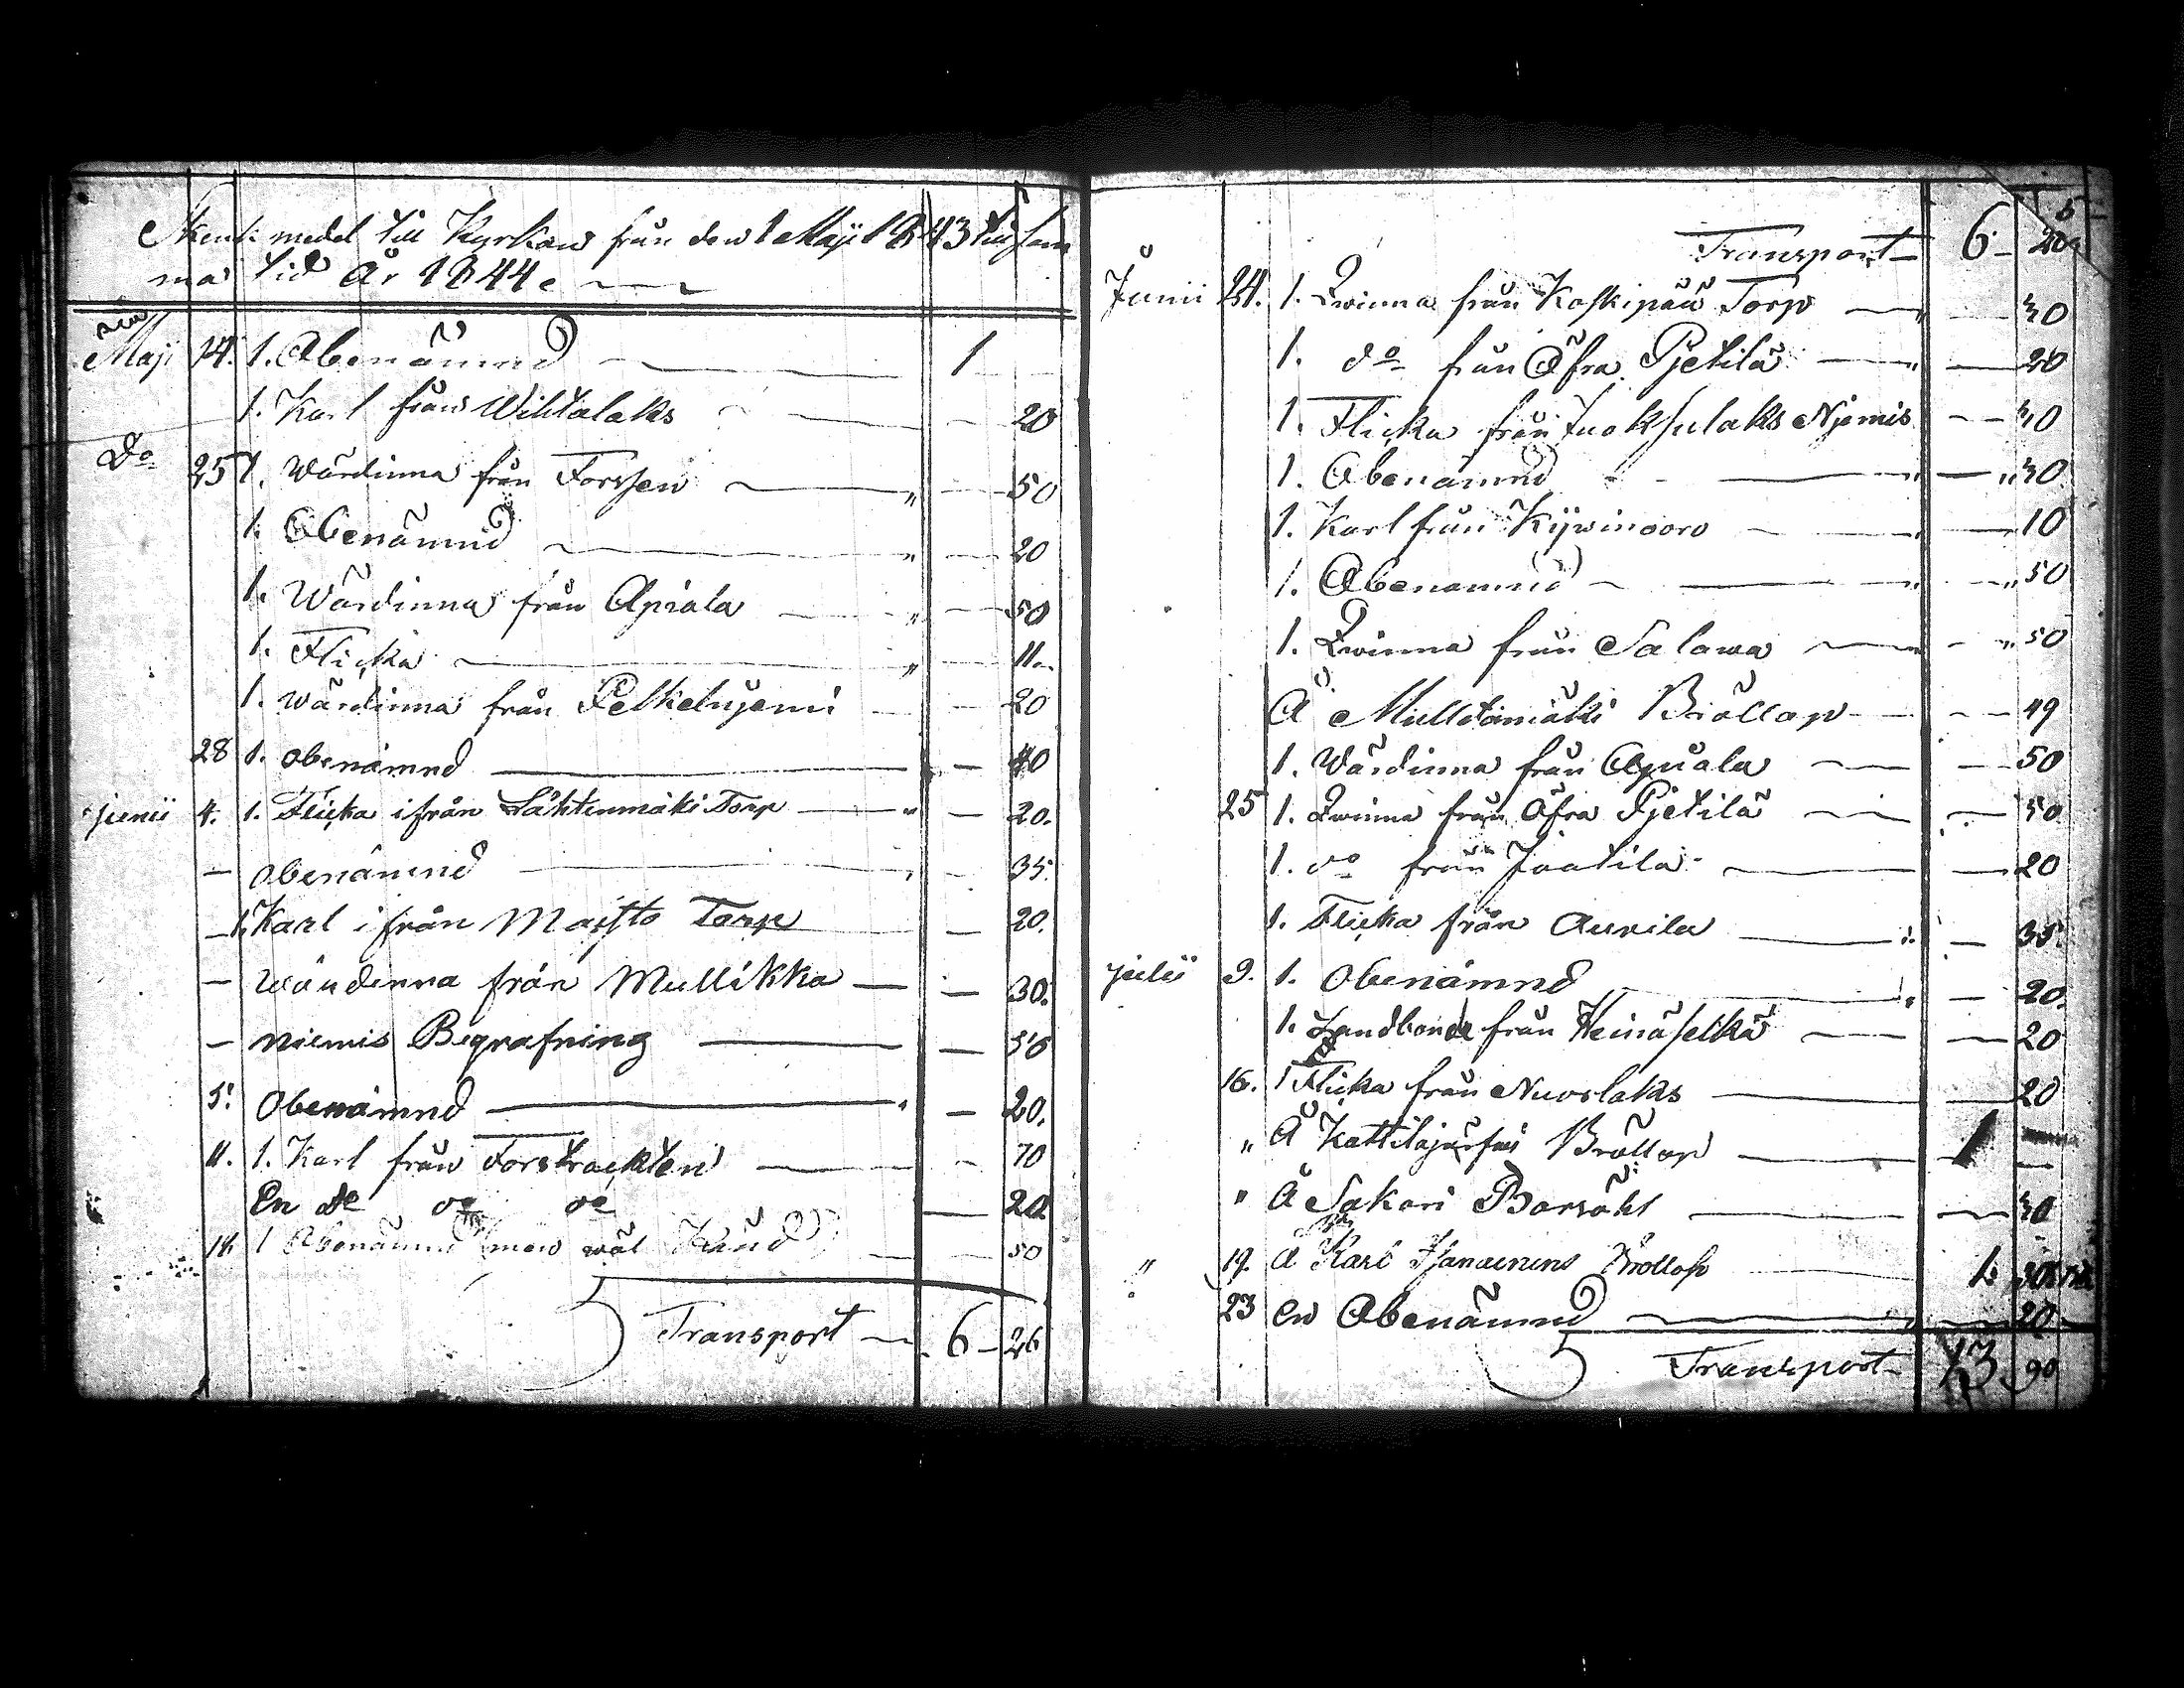 Skenk medel till Kyrkan från den 1 Maji 1843 till sam
ma tid år 1844.
Maji 14. 1. Obenämnd 1
1. Karl från Wihtalaks 20
Do 25 1. Wärdinna från Forssen 50
1. Obenämnd 20
1. Wärdinna från Apiala 50
1. Flicka 11
1. Wärdinna från Pelkelujemi 20
28 1. obenämnd 40
junii 4. 1. Flicka ifrån Lähtenmäki Torp 20.
— obenämnd 35.
— 1. Karl ifrån Maisto Torp 20.
— Wärdinna från Mullikka 30.
— Niemis Begrafning 50
5. Obenämnd 20.
11. 1. Karl från Forstrackten 70
En de do de 20
18 1 Obenämnd 50
Transport 6 26
5
Transport 6 26
Junii 24. 1. Qwinna från Koskipää Torp 40
1. do från Öfra Pjetilä 20
1. Flicka från Juoksulaks Njemis 40
1. Obenämnd 40
1. Karl från Kijwinooro 10
1. Obenämnd 50
1. Qwinna från Salawa 50
Å Mulletämäki Bröllop 49
1. Wärdinna från Apiala 50
25 1. Qwinna från Öfra Pjetilä 50
1. do från Jaatila 20
1. Flicka från Aurila 35.
julii 9. 1. Obenämnd 20.
1. Landbonde från Heinäselkä 20
16. 1 Flicka från Nuorlaks 20
" Å Kattilajärfwi Bröllop 1
" Å Sakari Barsöhl 40
" 19. Å Karl Bröllop 1.
23 En Obenämnd 20
Transport 13 90